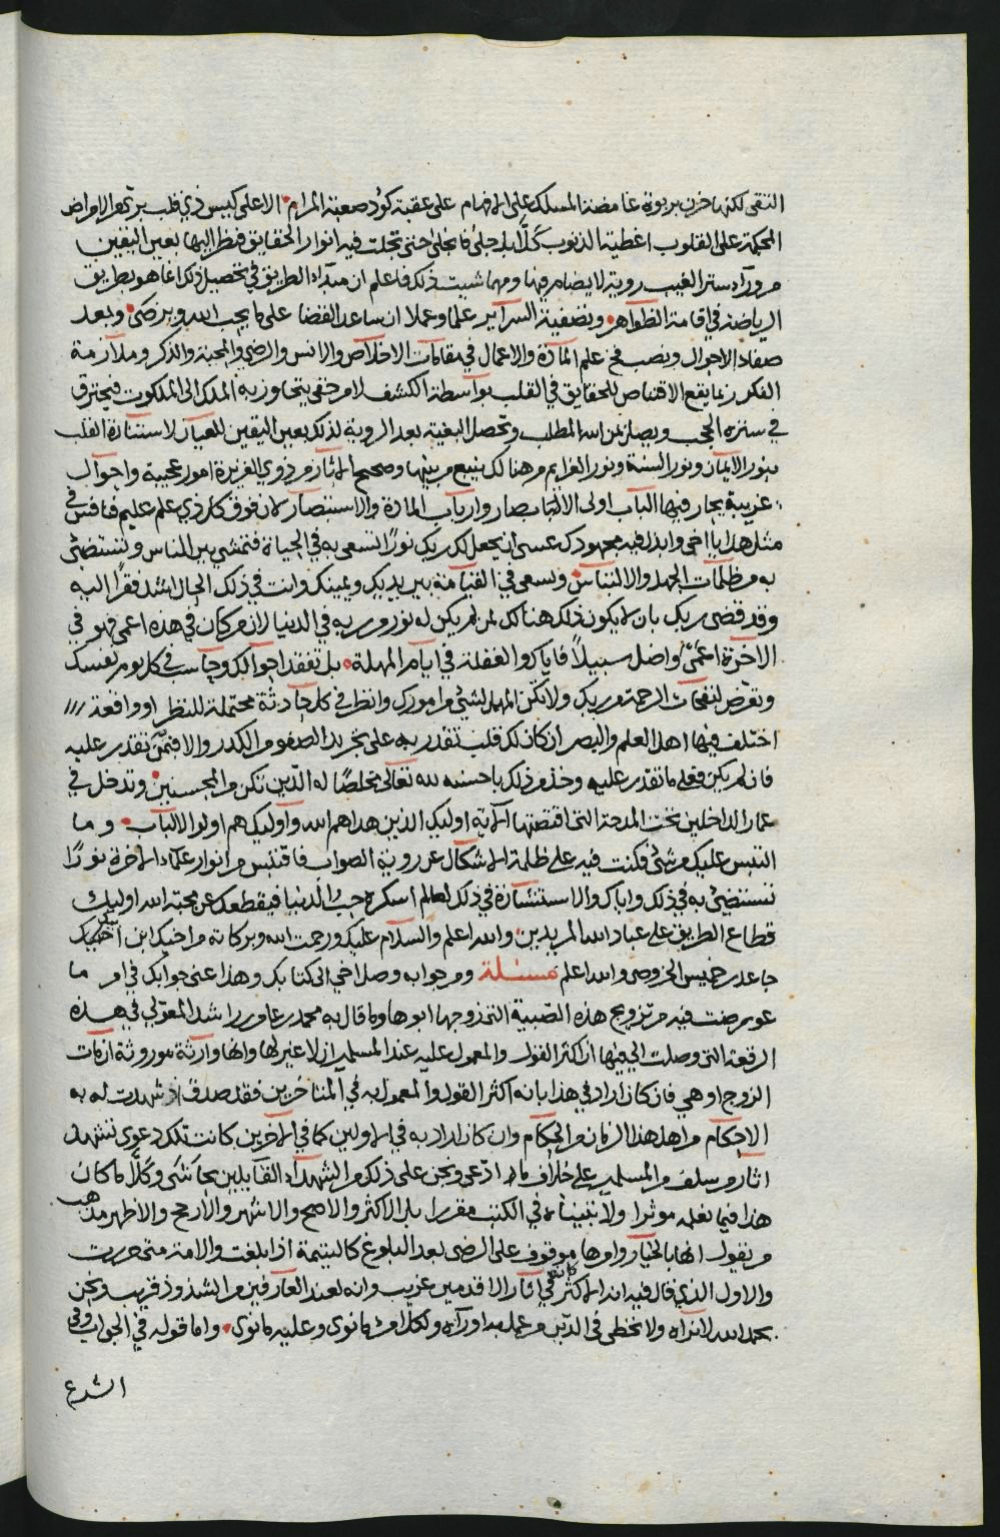 التقى لكنها حزن بربوة غامضة المسلك على الافهام على عقبة كؤد صعبة المرام الا على كيس ذي قلب برئ من الامراض
المحكمة على القلوب اغطية الذنوب كلا بل جلى كما تجلى حتى تجلت فيه انوار الحقايق فنظر اليها بعين اليقين
من ورآء ستر الغيب روية لا يضام فيها ومهما شيت ذلك فاعلم ان مبتدأ الطريق في تحصيل ذلك انما هو بطريق
الرياضة في اقامة الظواهر وتصفية السرآير علما وعملا ان ساعد القضا على ما يحب الله ويرضى وبعد
صفاء الاحوال ونصب فخ علم الارادة والاعمال في مقامات الاخلاص والانس والرضى والمحبة والذكر وملآزمة
الفكر ربما يقع الاقتناص للحقايق في القلب بواسطة الكشف لامر خفي يتجاوز به الملك الى الملكوت فيخترق
في سيره الحجب ويصل من الله المطلب وتحصل البغية بعد الروية لذلك بعين اليقين للعيان لاستنارة القلب
بنور الايمان ونور السنة ونور القرآن ومن هنالك ينبع من بينها وصحيح الاثار من ذوي الغزيرة امور عجيبة واحوال
غريبة يحار فيها الباب اولى الالباب صار وارباب الارادة والاستبصار لان فوق كل ذي علم عليم فنافس في
مثل هذا يا اخي وابذل فيه مجهودك عسى ان يجعل لك ربك نورًا تسعى به في الحياة فتمشي بين الناس وتستضئ
به من ظلمات الجهل والالتباس وتسعى في القيامة بين يديك ويمينك وانت في ذلك الحال اشد فقرًا اليه
وقد قضى ربك بان لا يكون ذلك هنالك لمن لم يكن له نور من ربه في الدنيا لان من كان في هذه اعمى فهو في
الاخرة اعمى واضل سبيلاً فاياك والغفلة في ايام المهلة بل تفقد احوالك وحاسب في كل يوم نفسك
وتعرض لنفحات الرحمة من ربك ولا تكن المهمل لشئ من امورك وانظر في كل حادثة محتملة للنظر او واقعة
اختلف فيها اهل العلم والبصر ان كان لك قلب تقدر به على تجريد الصفو من الكدر والا فتمن تقدر عليه
فان لم يكن فعلى ما تقدر عليه وخذ من ذلك باحسنه لله تعالى مخلصًا له الدين تكن من المحسنين وتدخل في
غمار الداخلين تحت المدحة التي اقتضتها الآية اوليك الذين هداهم الله واوليك هم اولوا الالباب وما
التبس عليك من شئ فكنت فيه على ظلمة الاشكال عن روية الصواب فاقتبس من انوار علماء الاخرة نورًا
تستضئ به في ذلك واياك والاستشارة في ذلك لعالم اسكره حب الدنيا فيقطعك عن محبة الله اوليك
قطاع الطريق على عباد الله المريدين والله اعلم والسلام عليك ورحمت الله وبركاته من اخيك ابن اخيك
جاعد بن خميس الخروصي والله اعلم مسئلة ومن جوابه وصل اخي الى كتابك وهذا عني جوابك في امر ما
عورضت فيه من تزويج هذه الصبية التي زوجها ابوها وما قال به محمد بن عامر بن راشد المعولي في هذه
الرقعة التي وصلت الي فيها ان اكثر القول والمعمول عليه عند المسلمين ان لا غير لها وانها وارثة موروثة ان مات
الزوج او هي فان كان اراد في هذا بانه اكثر القول والمعمول به في المتاخرين فقد صدق اذ شهدت له به
الاحكام من اهل هذا الزمان والحكام وان كان اراد به في الاولين كما في الاخرين كانت تلك دعوى تشهد
اثار من سلف من المسلمين على خلاف ما ادعى ونحن على ذلك من الشهدآء القآيلين بحاشى وكلا ما كان
هذا فيما نعلمه موثرا ولا تبيناه في الكتب مقررا بل الاكثر والاصح والاشهر والارجح والاظهر مذهب
من يقول انها بالخيار وامرها موقوف على الرضى بعد البلوغ كاليتيمة اذا بلغت والامة متى حررت
والاول الذي قال فيه انه الاكثر كانه في آثار الاقدمين غريب وانه لعند العارفين من الشذوذ قريب ونحن
بحمد الله لا نرآه ولا نخطى في الدين من عمل به او رآه ولكل امرئ ما نوى وعليه ما نوى واما قوله في الجواب وفي
الشرع